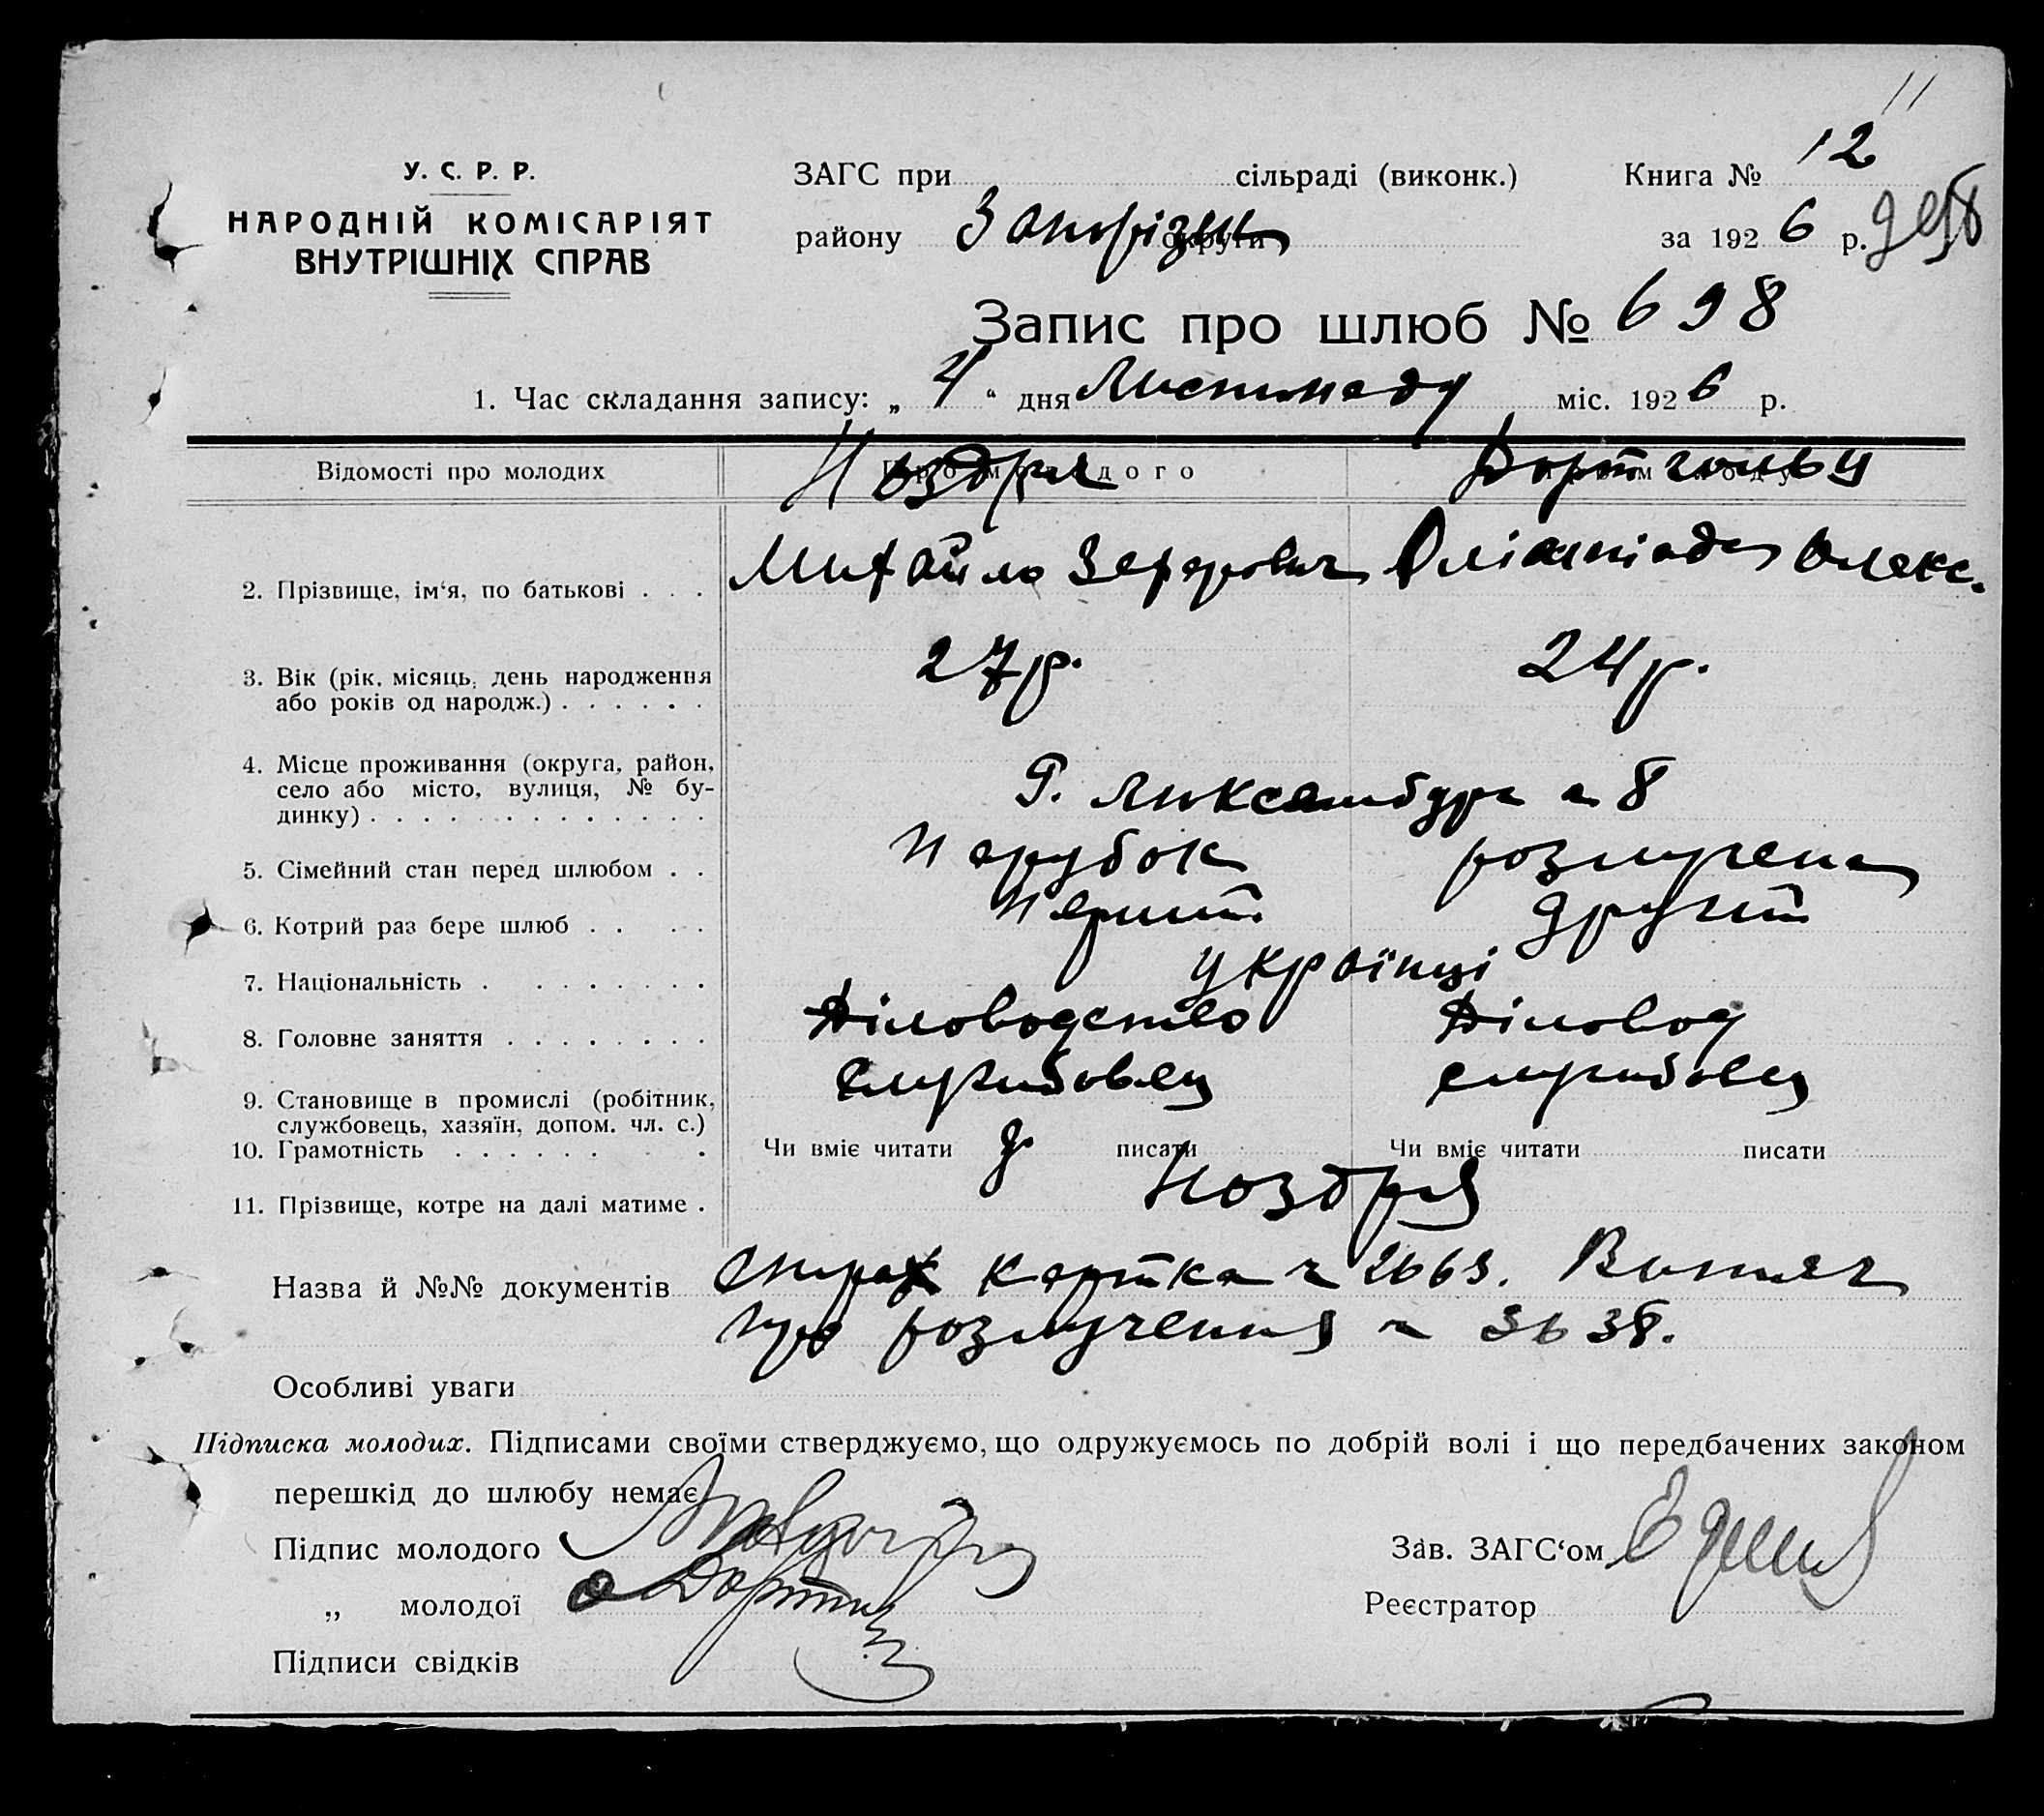 11
У. С. Р. Р.
НАРОДНІЙ КОМІСАРІЯТ
ВНУТРІШНІХ СПРАВ
ЗАГС при сільраді (виконк.) Книга № 12
району округи за 1926 р.
Запис про шлюб № 698
1. Час складання запису: „4“ дня Листопаду міс. 1926 р.
Відомості про молодих Про молодого Про молоду
Ноздря
2. Прізвище, ім‘я, по батькові . . . Михайло Олімпіада Олекс.
3. Вік (рік, місяць, день народження 27 р. 24 р.
або років од народж.) . . . . . .
4. Місце проживання (округа, район,
село або місто, вулиця, № бу- Р. Люксембург 8
динку) . . . . . . . . . . . . .
5. Сімейний стан перед шлюбом . . Парубок розлучена
6. Котрий раз бере шлюб . . . . Перший другий
7. Національність . . . . . . . . українці
8. Головне заняття . . . . . . . . Діловодство Діловод
9. Становище в промислі (робітник, службовец службовец
службовець, хазяїн, допом. чл. с.)
10. Грамотність . . . . . . . . Чи вміє читати писати Чи вміє читати писати
11. Прізвище, котре на далі матиме . Ноздря
Назва й №№ документів картка 2663. Витяг
про розлучення 3638.
Особливі уваги
Підписка молодих. Підписами своїми стверджуємо, що одружуємось по добрій волі і що передбачених законом
перешкід до шлюбу немає
Підпис молодого Зав. ЗАГС‘ом
„ молодої Реєстратор
Підписи свідків